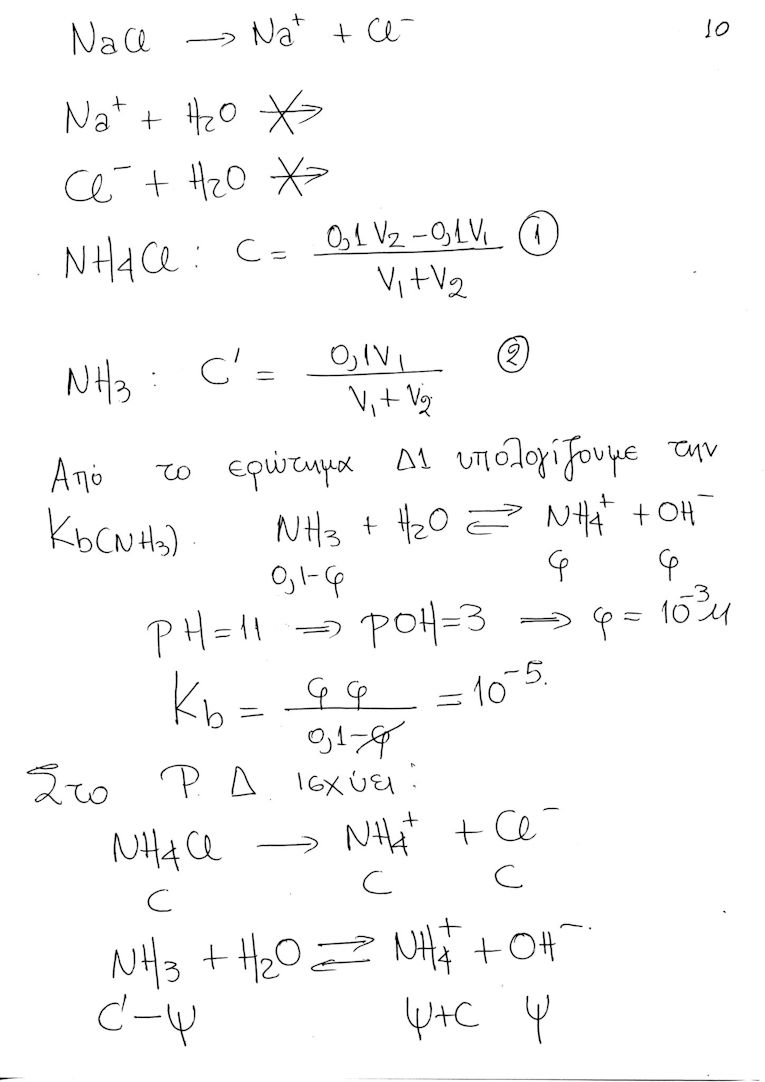 10
NaCl → Na⁺ + Cl⁻
Na⁺ + H₂O ↛
Cl⁻ + H₂O ↛
NH₄Cl : C = (0,1V₂ – 0,1V₁) / (V₁+V₂) ①
NH₃ : C' = 0,1V₁ / (V₁+V₂) ②
Από το ερώτημα Δ1 υπολογίζουμε την
Kb(NH₃). NH₃ + H₂O ⇌ NH₄⁺ + OH⁻
0,1-φ φ φ
PH=11 ⇒ POH=3 ⇒ φ = 10⁻³M
Kb = φ φ / (0,1-φ) = 10⁻⁵.
Στο Ρ.Δ. ισχύει:
NH₄Cl → NH₄⁺ + Cl⁻
C C C
NH₃ + H₂O ⇌ NH₄⁺ + OH⁻.
C'-ψ ψ+C ψ